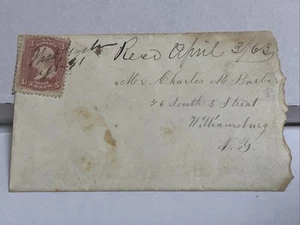 Recd April 3/63
Mr Charles M Barber
76 South 8 Street
Williamsburg
N.Y.